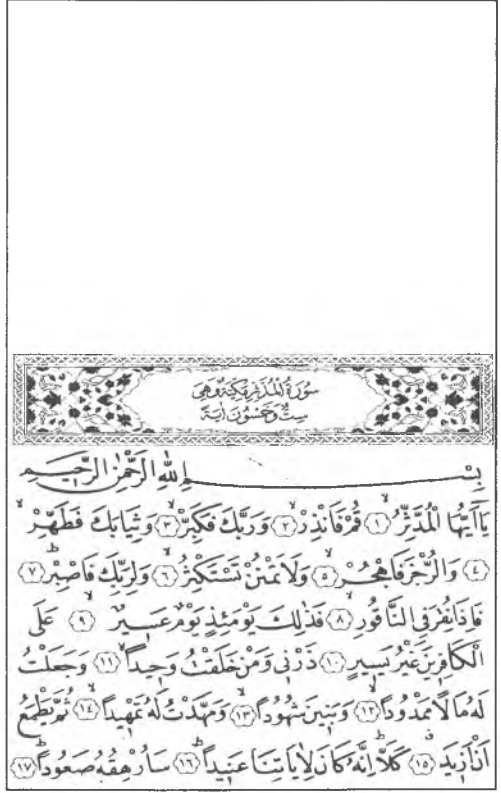 سُورَةُ الْمُدَّثِّرِ مَكِّيَّةٌ وَهِىَ
سِتٌّ وَخَمْسُونَ اٰيَةً
بِسْــــــمِ اللهِ الرَّحْمٰنِ الرَّحٖيـــمِ
يَٓا اَيُّهَا الْمُدَّثِّرُۙ ﴿١﴾ قُمْ فَاَنْذِرْۙ ﴿٢﴾ وَرَبَّكَ فَكَبِّرْۙ ﴿٣﴾ وَثِيَابَكَ فَطَهِّرْۙ
﴿٤﴾ وَالرُّجْزَ فَاهْجُرْۙ ﴿٥﴾ وَلَا تَمْنُنْ تَسْتَكْثِرُۙ ﴿٦﴾ وَلِرَبِّكَ فَاصْبِرْۜ ﴿٧﴾
فَاِذَا نُقِرَ فِى النَّاقُورِۙ ﴿٨﴾ فَذٰلِكَ يَوْمَئِذٍ يَوْمٌ عَسٖيرٌۙ ﴿٩﴾ عَلَى
الْكَافِرٖينَ غَيْرُ يَسٖيرٍ ﴿١٠﴾ ذَرْنٖى وَمَنْ خَلَقْتُ وَحٖيداًۙ ﴿١١﴾ وَجَعَلْتُ
لَهُ مَالاً مَمْدُوداًۙ ﴿١٢﴾ وَبَنٖينَ شُهُوداًۙ ﴿١٣﴾ وَمَهَّدْتُ لَهُ تَمْهٖيداًۙ ﴿١٤﴾ ثُمَّ يَطْمَعُ
اَنْ اَزٖيدَۗ ﴿١٥﴾ كَلَّاۜ اِنَّهُ كَانَ لِاٰيَاتِنَا عَنٖيداًۜ ﴿١٦﴾ سَاُرْهِقُهُ صَعُوداًۜ ﴿١٧﴾